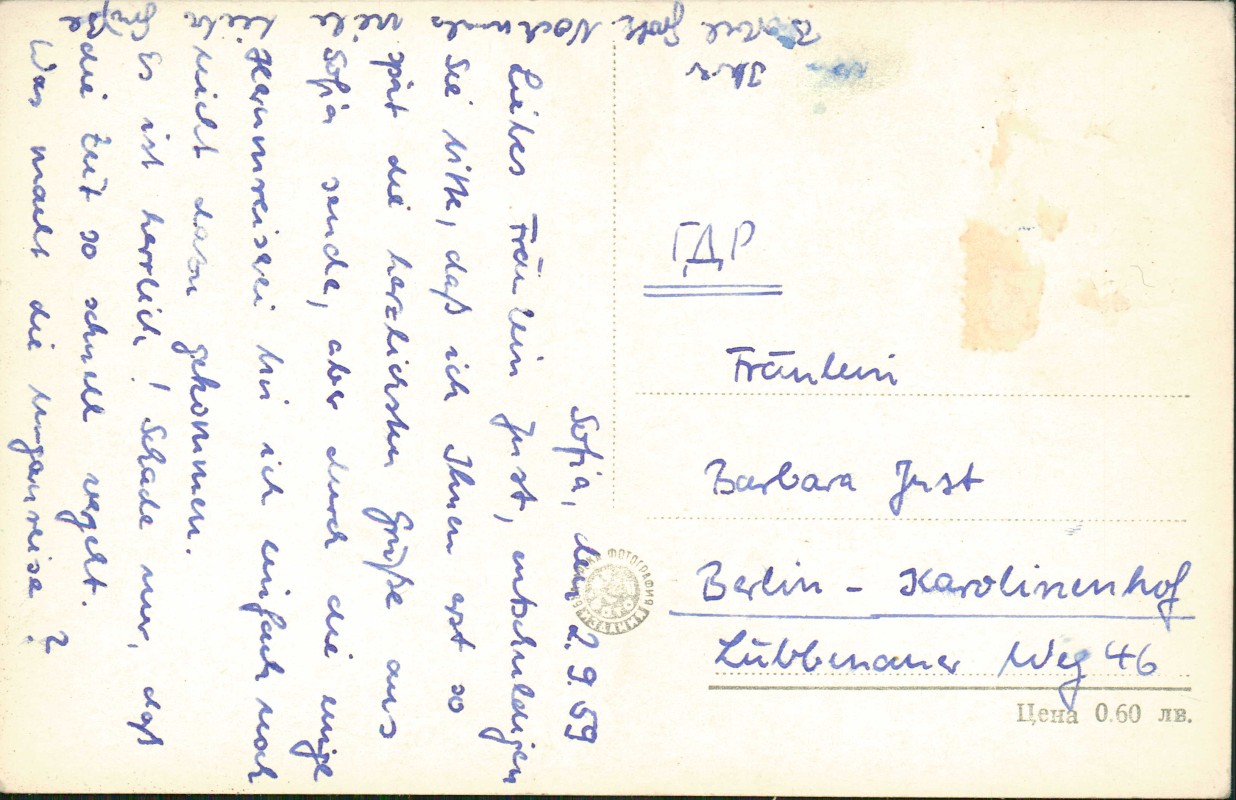 Sofia, den 2.9.59
Liebes Fräulein Just, entschuldigen
Sie bitte, daß ich Ihnen erst so
spät die herzlichsten Grüße aus
Sofia sende, aber durch die ewige
Herumreiserei bin ich einfach noch
nicht dazu gekommen.
Es ist herrlich! Schade nur, daß
die Zeit so schnell vergeht.
Was macht die Ungarnreise?
Nochmals viele liebe Grüße
Ihr
ГДР
Fräulein
Barbara Just
Berlin - Karolinenhof
Lübbenauer Weg 46
Цена 0.60 лв.
ФОТОГРАФИЯ